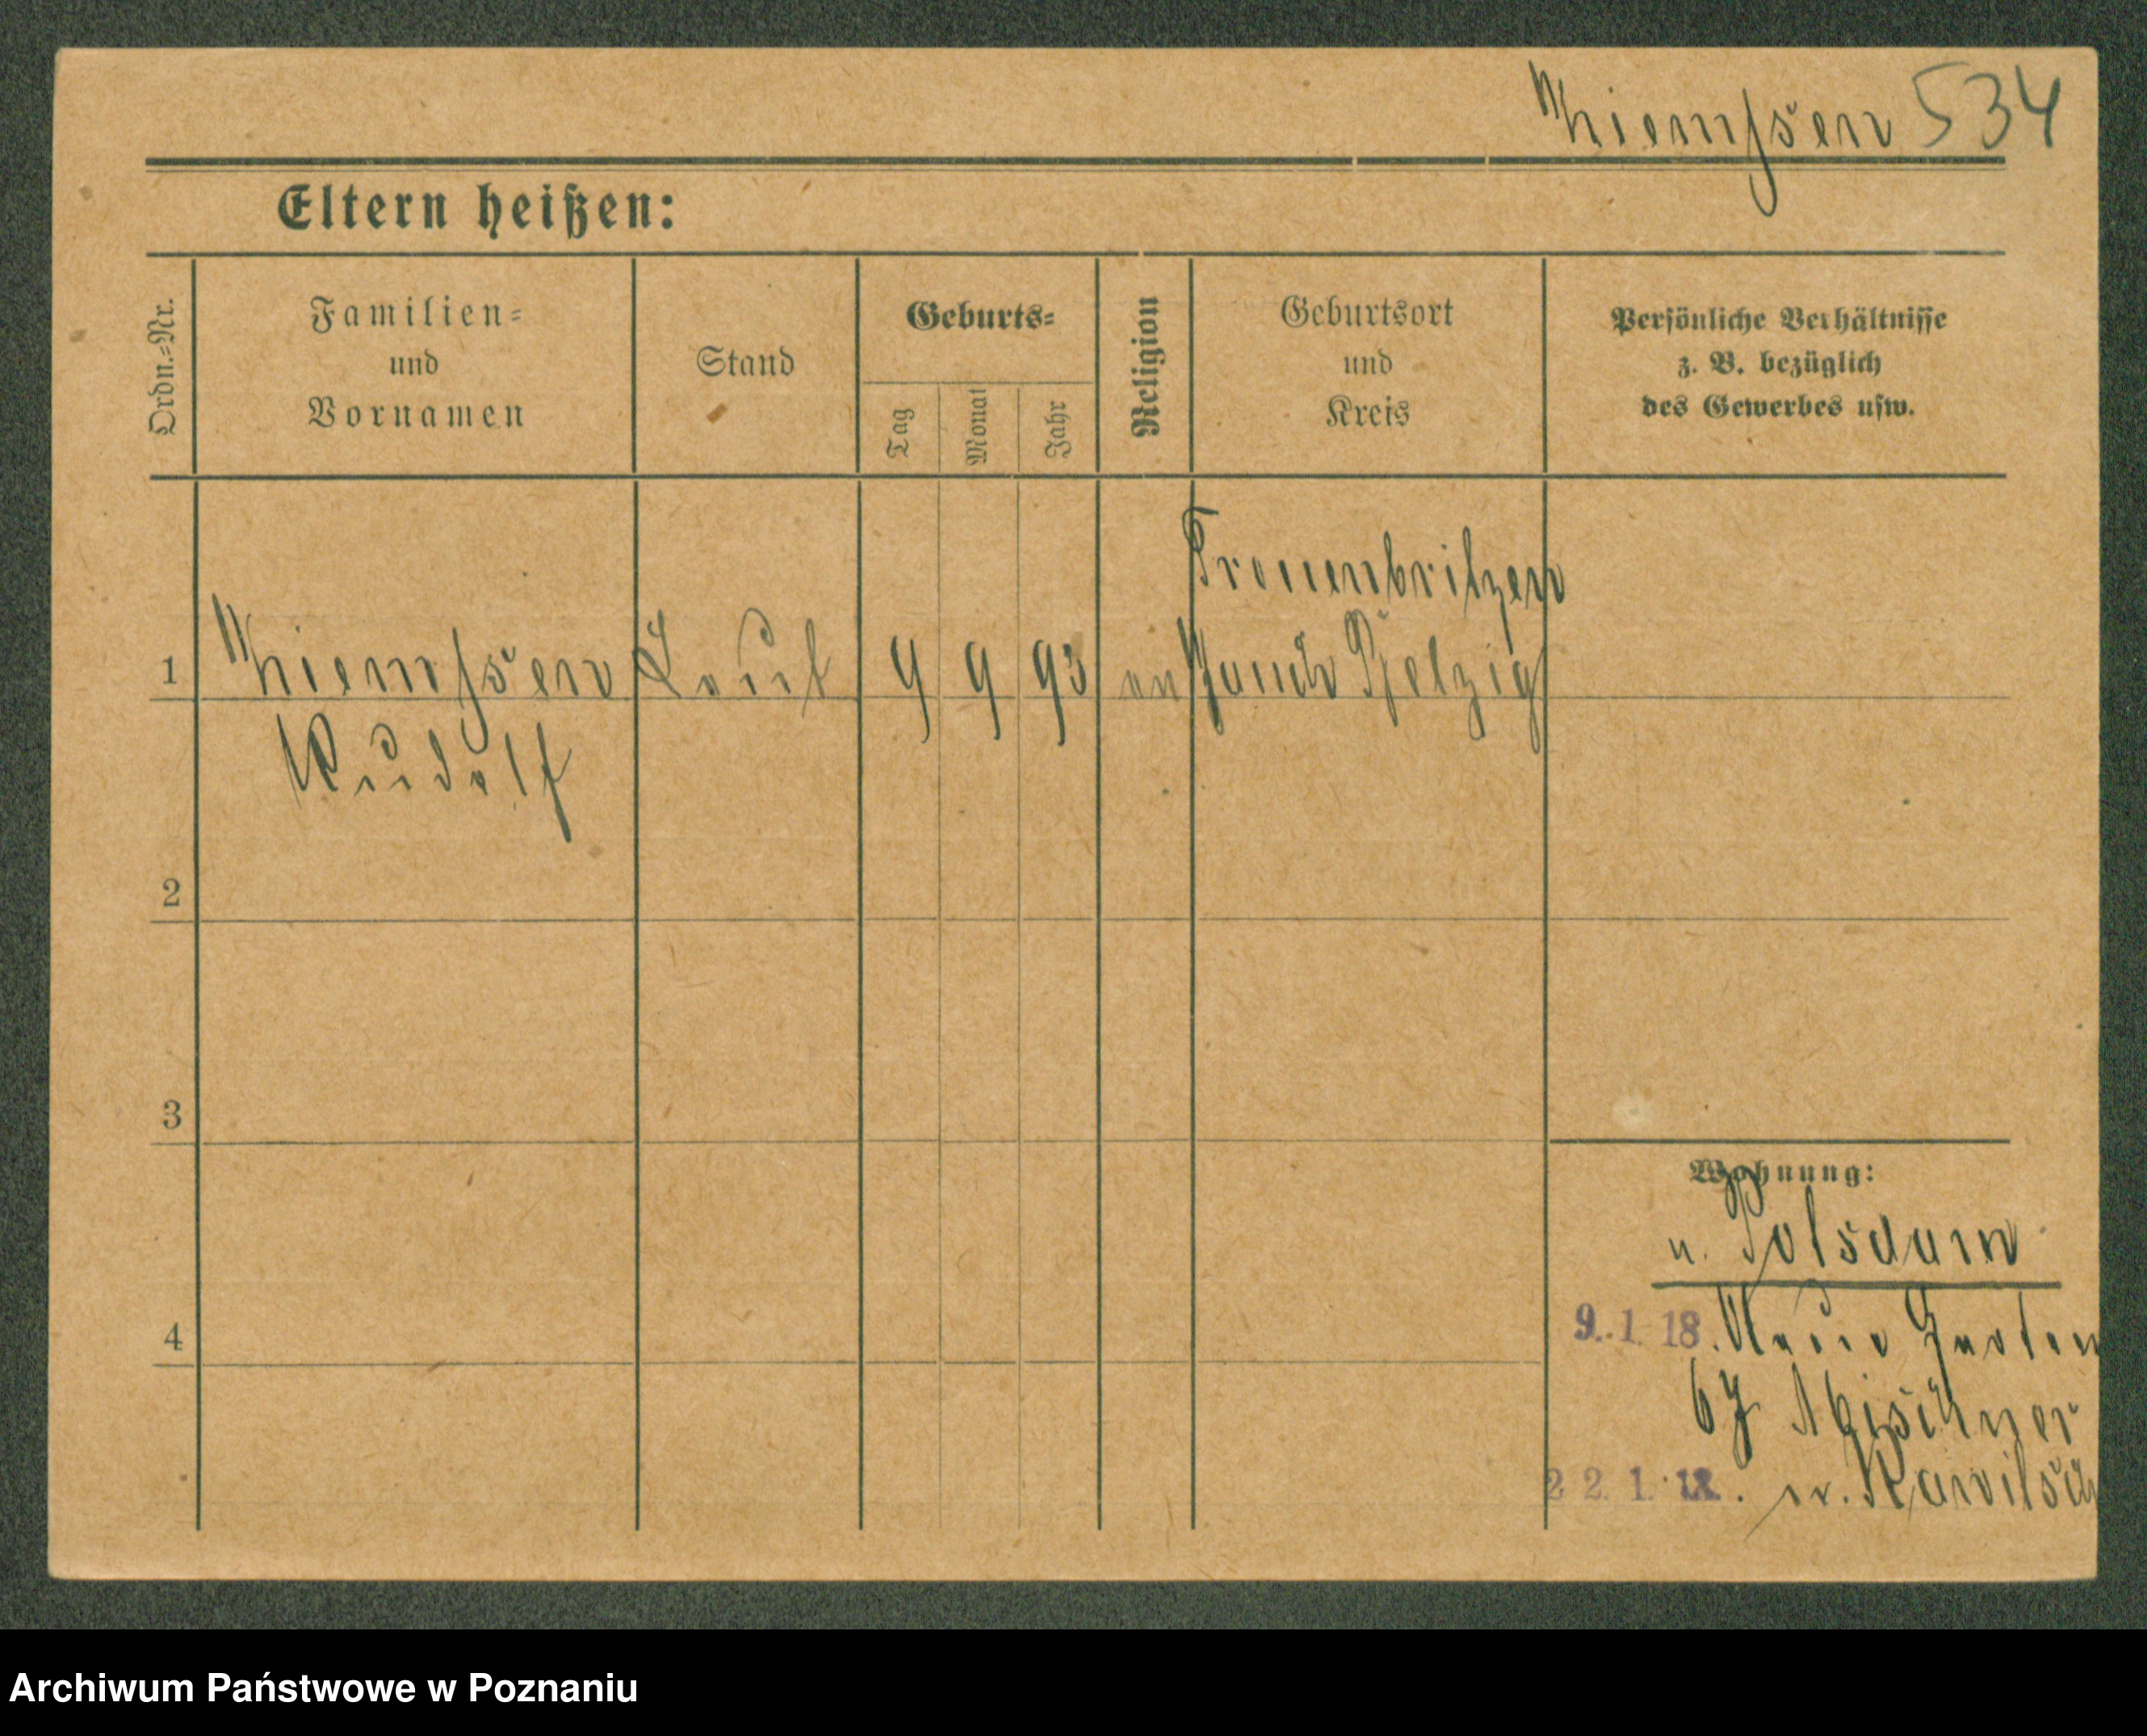 Thiemssen 534
Eltern heißen:
Ordn.-Nr.
Familien-
und
Vornamen
Stand
Geburts-
Tag
Monat
Jahr
Religion
Geburtsort
und
Kreis
Persönliche Verhältnisse
z. B. bezüglich
des Gewerbes usw.
Treuenbritzen
1 Thiemssen 9 9 93 ev Zauch Belzig
Rudolf
2
3
4
Wohnung:
v. Potsdam
9. 1. 18. Neue Garten
67
22. 1. 18. n. Rawitsch
Archiwum Państwowe w Poznaniu